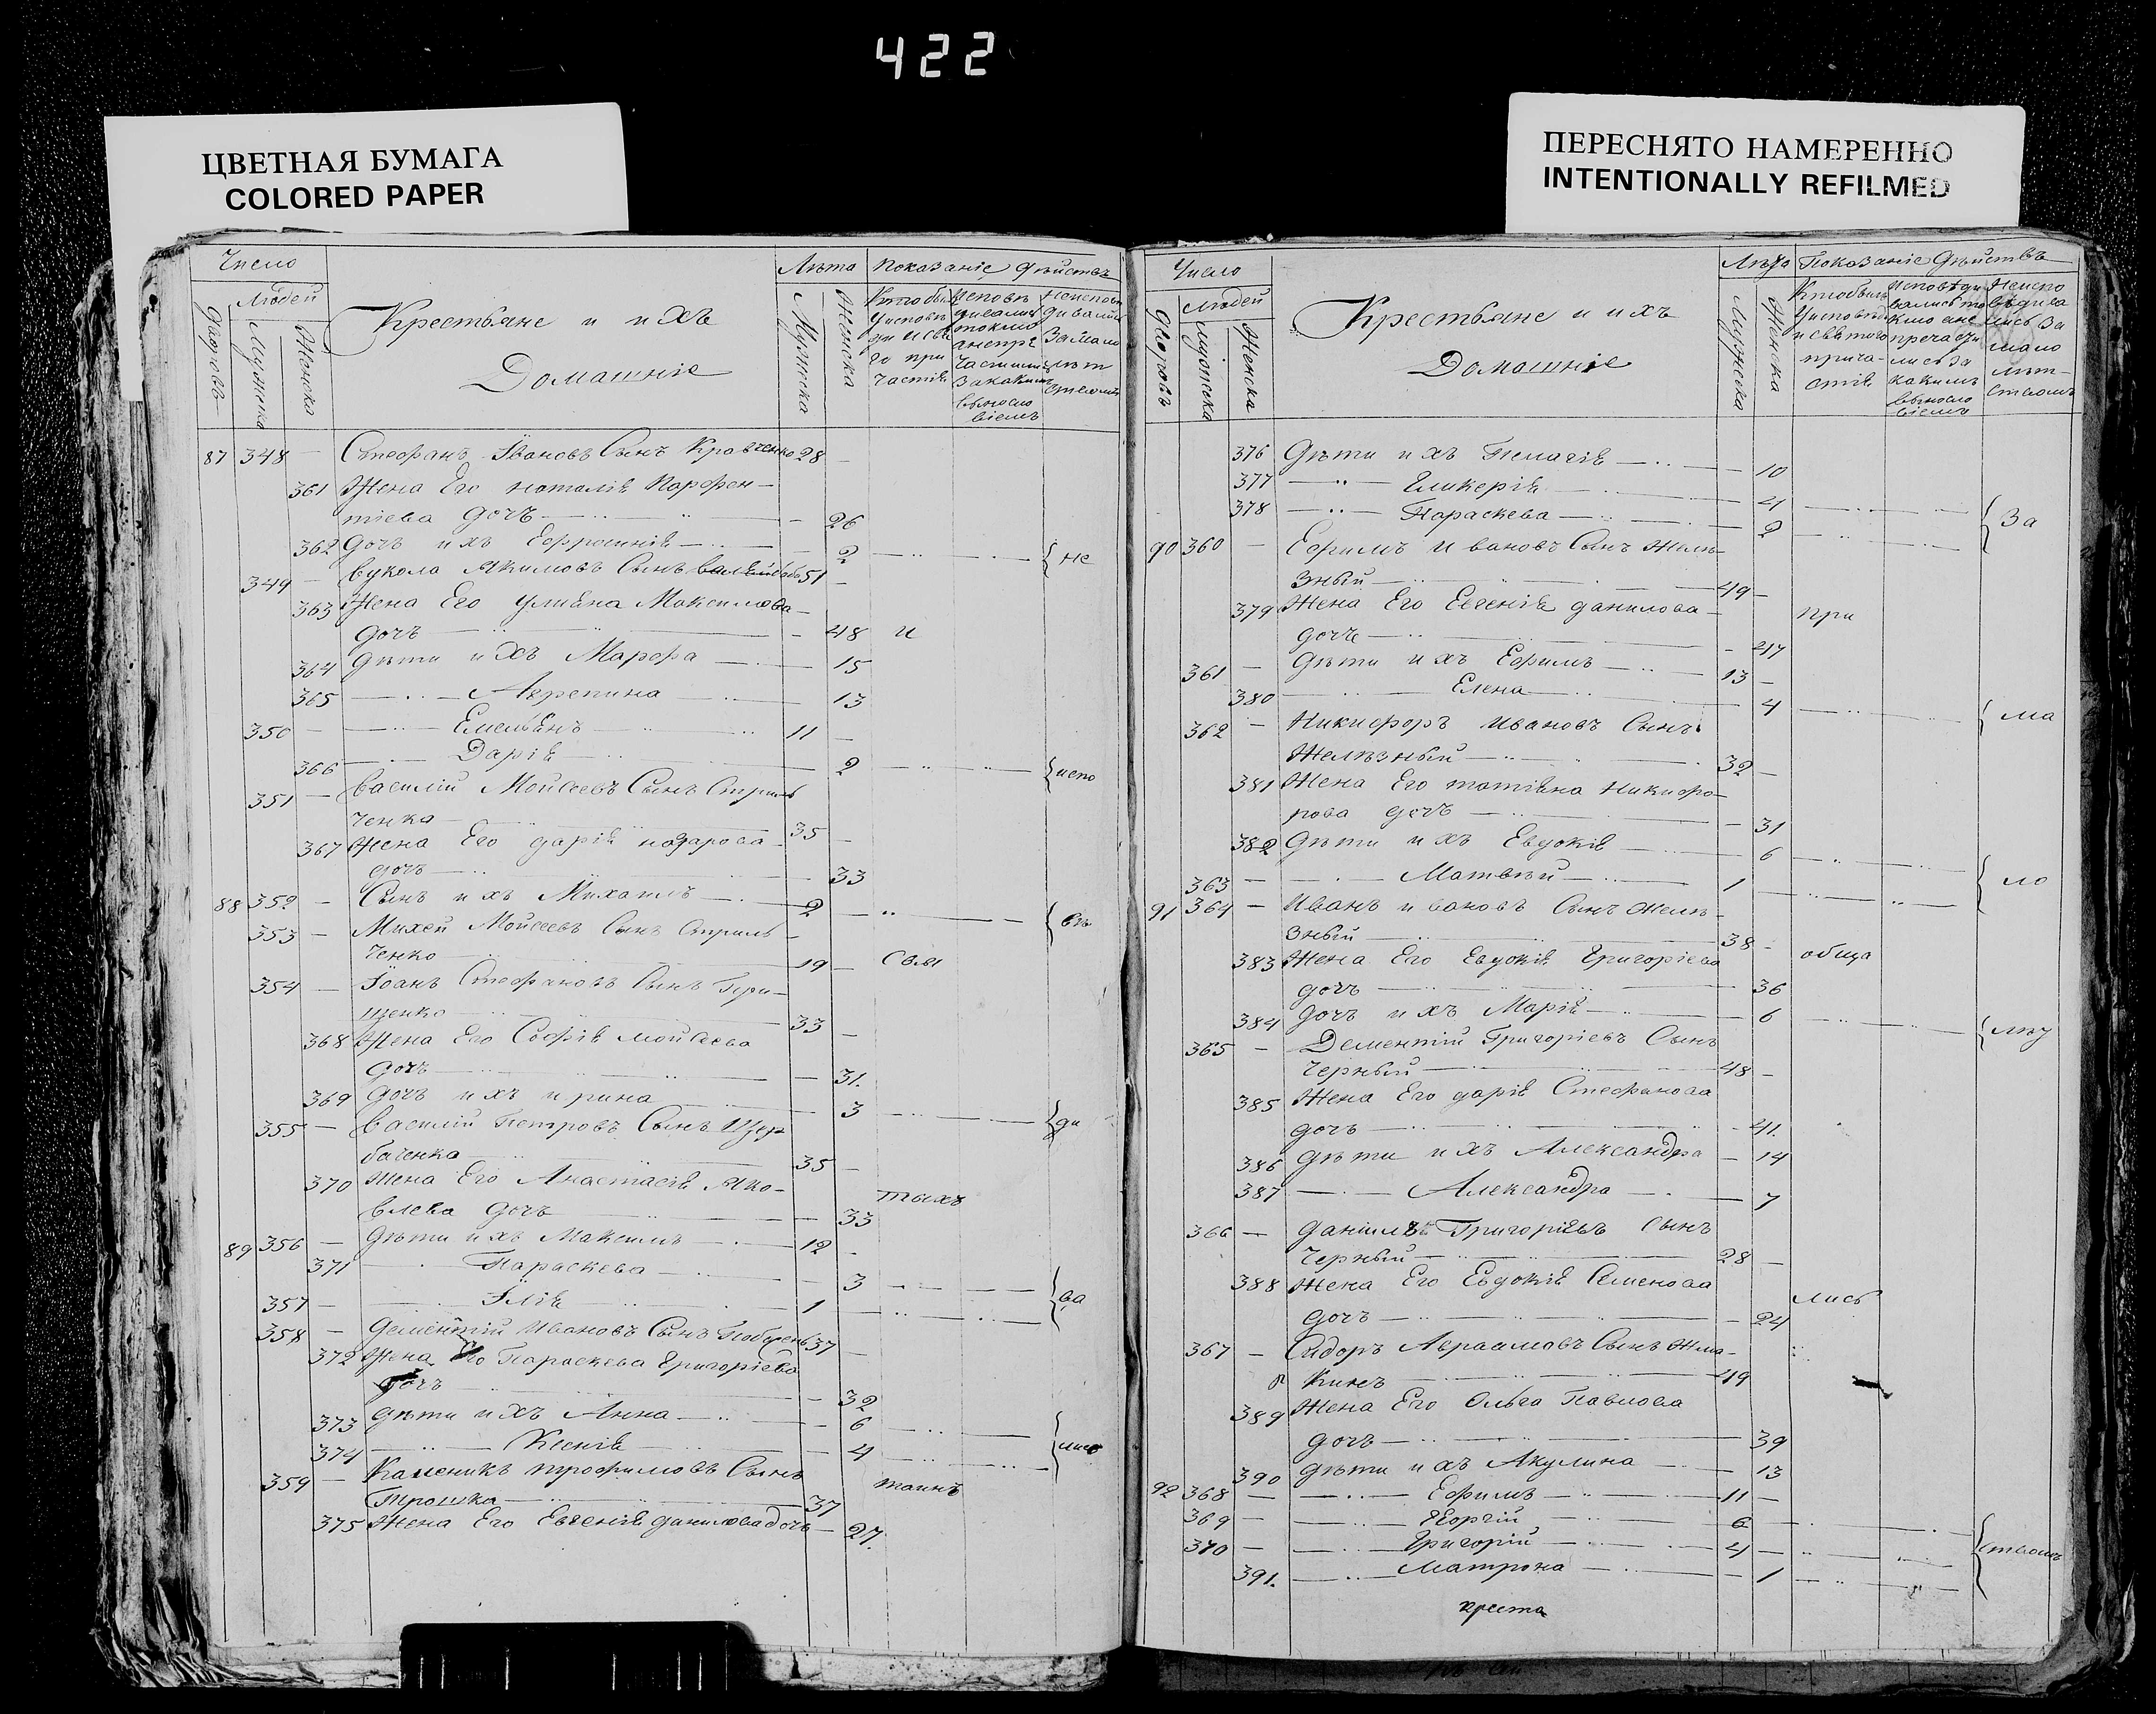 422
ЦВЕТНАЯ БУМАГА
COLORED PAPER
ПЕРЕСНЯТО НАМЕРЕННО
INTENTIONALLY REFILMED
Число
Людей
Дворовъ
Мужеска
Женска
Крестьяне и ихъ
Домашніе
Лѣта
Мужеска
Женска
Показаніе дѣйствъ
87 348 — Стефанъ Івановъ Сынъ Кравченко 28 —
361 Жена Его Наталія Парфен-
тіева дочь — 26
362 Дочь ихъ Евфросинія — 2 { не
349 — Вукола Якимовъ Сынъ 51 —
363 Жена Его Улияна Максимова
дочь — 48 и
364 Дѣти ихъ Марфа — 15
365 Агрепина — 13
350 — Емельянъ 11 —
366 Дарія — 2 { испо
351 — Василій Мойсеевъ Сынъ Стриль
ченко 35 —
367 Жена Его дарія назарова
дочь — 33
88 352 — Сынъ ихъ Михаилъ 2 — { вѣ
353 — Михей Мойсеевъ Сынъ Стриль
ченко 19 — Свя
354 — Іоанъ Стефановъ Сынъ Гри-
щенко 33 —
368 Жена Его Софія мойсеева
дочь — 31.
369 Дочь ихъ ирина 3 { ди
355 — Василій Петровъ Сынъ Щер
баченко 35 —
370 Жена Его Анастасія Яко-
влева дочь — 33 тыхъ
89 356 — Дѣти ихъ Максимъ 12 -
371 Параскева — 3 { ва
357 — Ілія 1
358 — Дементій Ивановъ Сынъ 37 —
372 Жена Его Параскева Григоріева
дочь — 32
373 Дѣти ихъ Анна — 6 { лись
374 Ксенія — 4
359 — Каленикъ трофимовъ Сынъ
Трошка 37 таинъ
375 Жена Его Евгенія данилова дочь — 27.
Число
Людей
Дворовъ
Мужеска
Женска
Крестьяне и ихъ
Домашніе
Лѣта
Мужеска
Женска
Показаніе дѣйствъ
376 Дѣти ихъ Пелагія — 10
377 Гликерія 4 { За
378 Параскева — 2
90 360 — Ефимъ Ивановъ Сынъ Желѣ-
зный 49 —
379 Жена Его Евгенія данилова при
дочь — 47
361 — Дѣти ихъ Ефимъ 13 —
380 Елена 4 { ма
362 — Никифоръ Ивановъ Сынъ
Желѣзный 32 —
381 Жена Его татіяна Никифо-
рова дочь — 31
382 Дѣти ихъ Евдокія — 6 { ло
363 — Матвѣй 1
91 364 — Иванъ ивановъ Сынъ Желѣ-
зный 38 -
383 Жена Его Евдокія Григоріева обща
дочь — 36
384 Дочь ихъ Марія — 6 { лѣт
365 — Дементій Григоріевъ Сынъ
Черный 48 —
385 Жена Его дарія Стефанова
дочь — 41.
386 Дѣти ихъ Александра — 14
387 Александра — 7
366 — Даніилъ Григорієвъ Сынъ
Черный 28 —
388 Жена Его Евдокія Семенова
дочь — 24 лись
367 — Сидоръ Авраамовъ Сынъ Жма-
кинъ 49
389 Жена Его Ольга Павлова
дочь — 39
390 Дѣти ихъ Акулина — 13
92 368 — Ефимъ 11 —
369 — Георгій 6
370 — Григорій 4 — { ствомъ
391. Матрона — 1
креста